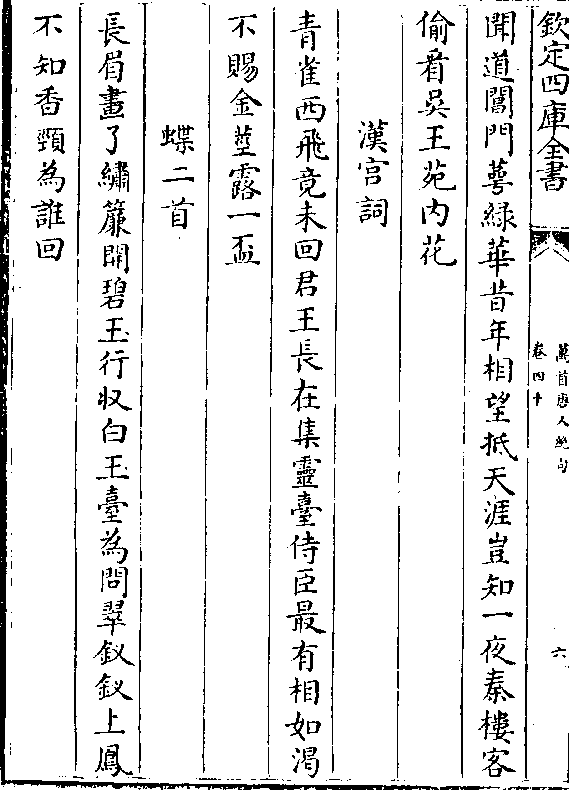 欽定四庫全書
萬首唐人絶句
卷四十
六
聞道閶門萼緑華昔年相望抵天涯豈知一夜秦樓客
偷看吳王苑内花
漢宫詞
青雀西飛竟未回君王長在集靈臺侍臣最有相如渴
不賜金莖露一盃
蝶二首
長眉畫了繡簾開碧玉行收白玉臺為問翠釵釵上鳳
不知香頸為誰回